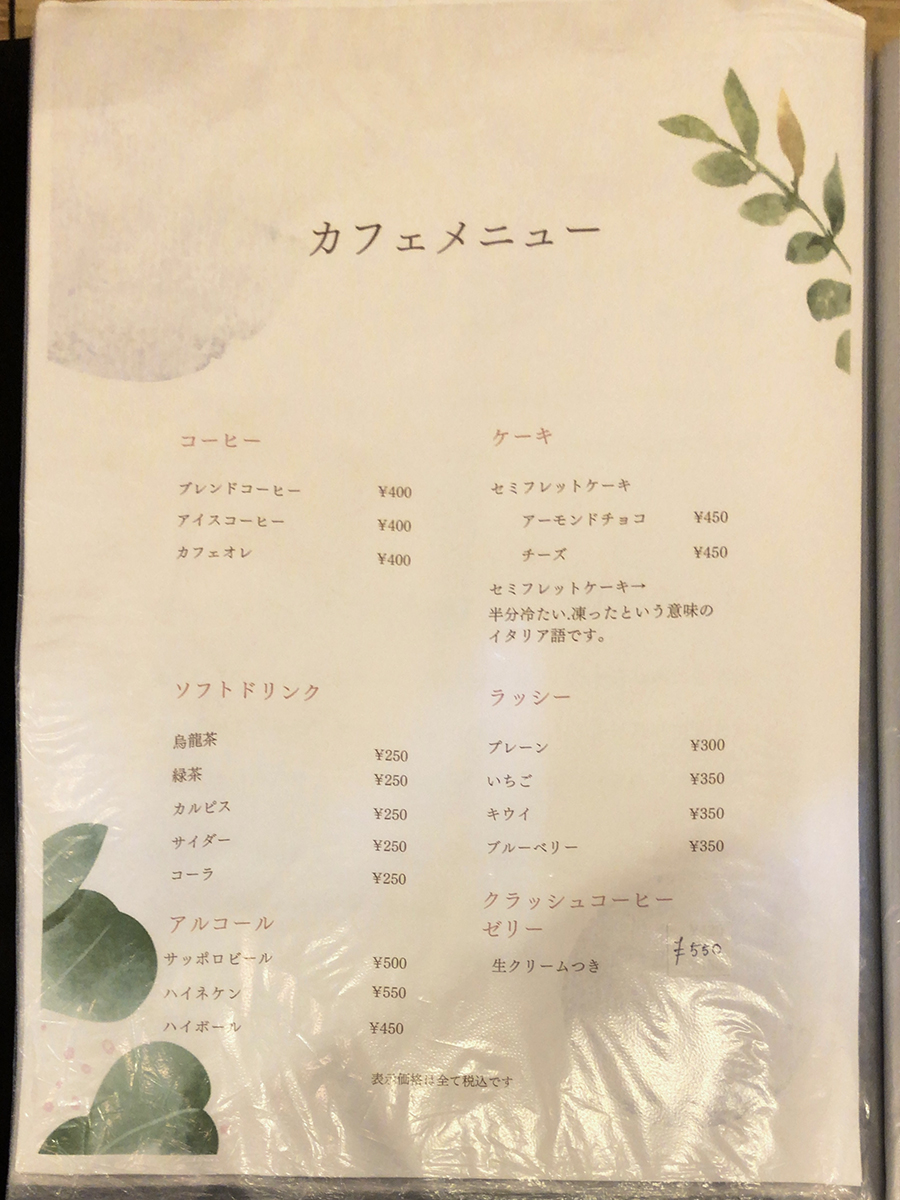 カフェメニュー
コーヒー
ブレンドコーヒー ¥400
アイスコーヒー ¥400
カフェオレ ¥400
ケーキ
セミフレットケーキ
アーモンドチョコ ¥450
チーズ ¥450
セミフレットケーキ→
半分冷たい.凍ったという意味の
イタリア語です。
ソフトドリンク
烏龍茶 ¥250
緑茶 ¥250
カルピス ¥250
サイダー ¥250
コーラ ¥250
ラッシー
プレーン ¥300
いちご ¥350
キウイ ¥350
ブルーベリー ¥350
アルコール
サッポロビール ¥500
ハイネケン ¥550
ハイボール ¥450
クラッシュコーヒー
ゼリー
生クリームつき ¥550
表示価格は全て税込です